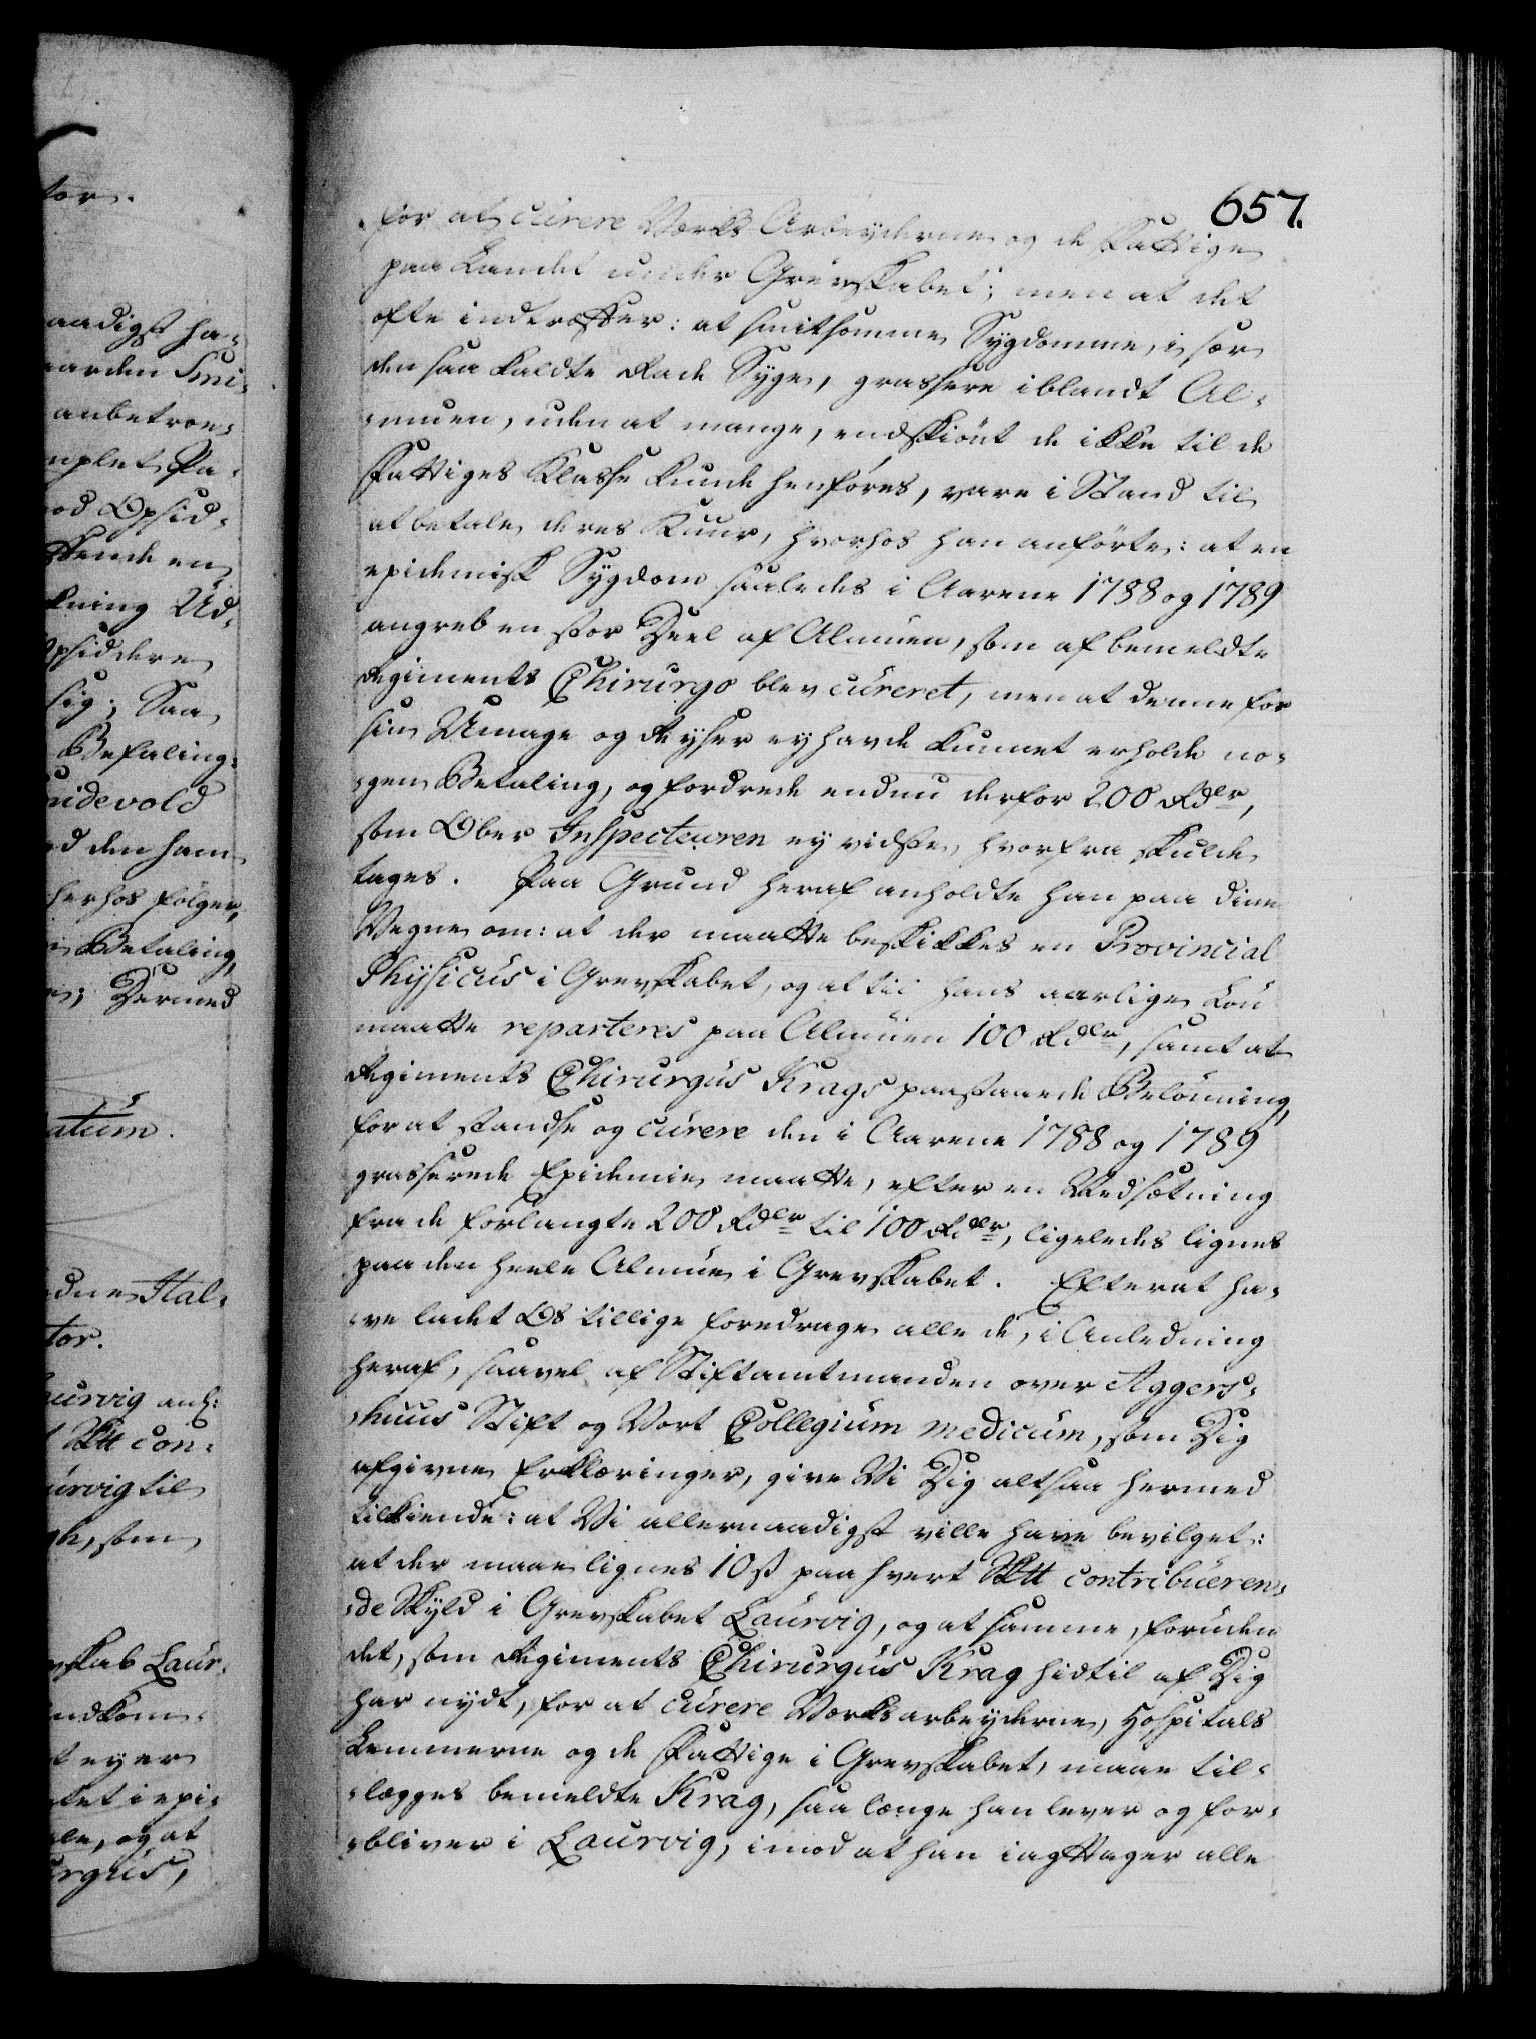 657.
for at curere Værks Arbeyderne og de Fattige
paa Landet under Grevskabet; men at det
ofte indtræffer: at smitsomme Sygdomme, i sær
den saa kaldte Rade Syge, grassere iblandt Al-
-muen, uden at mange, endskiönt de ikke til de
Fattiges Klasse kunde henföres, vare i Stand til
at betale deres Kuur, hvorhos han anförte: at en
epidemisk Sygdom saaledes i Aarene 1788 og 1789
angreb en stor Deel af Almuen, som af bemeldte
Regiments Chirurgo blev cureret, men at denne for
sin Umage og Reyser ey havde kunnet erholde no-
-gen Betaling, og fordrede endnu derfor 200 Rdlr,
som Ober Inspecteuren ey vidste, hvorfra skulde
tages. Paa Grund heraf anholdte han paa dine
Vegne om: at der maatte beskikkes en Provincial
Physicus i Grevskabet, og at til hans aarlige Lön
maatte reparteres paa Almuen 100 Rdlr, samt at
Regiments Chirurgus Krags paastaaede Belönning,
for at standse og curere den i Aarene 1788 og 1789
grasserede Epidemie, maatte, efter en Nedsætning
fra de forlangte 200 Rdlr til 100 Rdlr, ligeledes lignes
paa den heele Almue i Grevskabet. Efterat ha-
-ve ladet Os tillige foredrage alle de, i Anledning
heraf, saavel af Stiftamtmanden over Aggers-
-huus Stift og Vort Collegium medicum, som Dig
afgivne Erklæringer, give Vi Dig altsaa hermed
tilkiende: at Vi allernaadigst ville have bevilget:
at der maae lignes 10 ß paa hvert contribueren-
-de Skyld i Grevskabet Laurvig, og at samme, foruden
det, som Regiments Chirurgus Krag hidtil af Dig
har nydt, for at curere Værksarbeyderne, Hospitals
Lemmerne og de Fattige i Grevskabet, maae til-
-lægges bemeldte Krag, saa længe han lever og for-
-bliver i Laurvig, imod at han iagttager alle